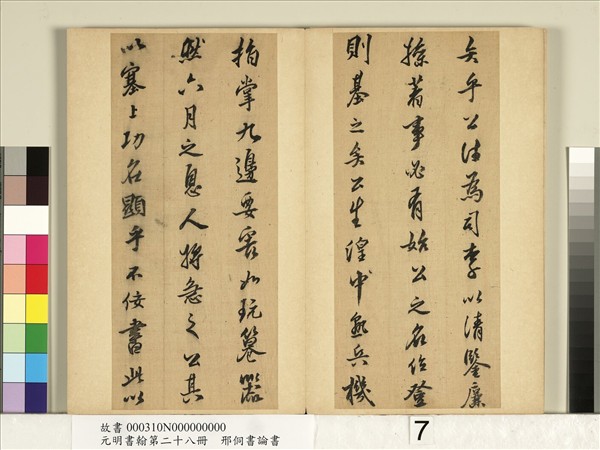 矣乎公為司李以清鑒廉
操著事必有始公之名位登
則基之矣公生湟中熟兵機
指掌九邊要害如玩器
然六月之息人將急之公其
以塞上功名顯乎不佞書此以
故書 000310N000000000
元明書翰第二十八冊　邢侗書論書
7